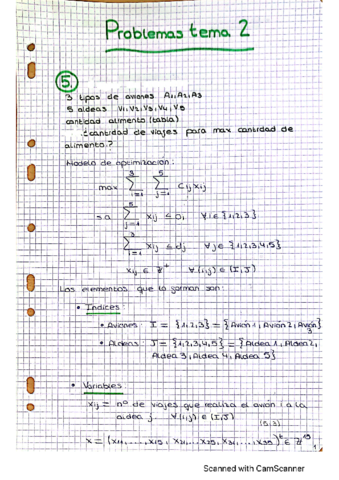 Problemas tema 2
5.
3 tipos de aviones A1, A2, A3
5 aldeas V1, V2, V3, V4, V5
cantidad alimento (tabla)
¿cantidad de viajes para max cantidad de
alimento?
Modelo de optimización:
max ∑_{i=1}^{3} ∑_{j=1}^{5} Cij xij
s.a ∑_{j=1}^{5} xij ≤ oi ∀i ∈ {1,2,3}
∑_{i=1}^{3} xij ≤ dj ∀j ∈ {1,2,3,4,5}
xij ∈ Z+ ∀(i,j) ∈ (I,J)
Los elementos que lo forman son:
• Índices:
• Aviones: I = {1,2,3} = {Avión 1, Avión 2, Avión 3}
• Aldeas: J = {1,2,3,4,5} = {Aldea 1, Aldea 2,
Aldea 3, Aldea 4, Aldea 5}
• Variables
xij = nº de viajes que realiza el avión i a la
aldea j ∀(i,j) ∈ (I,J)
x = (x11, ..., x15, x21, ... x25, x31, ..., x35)t ∈ Z
1
Scanned with CamScanner